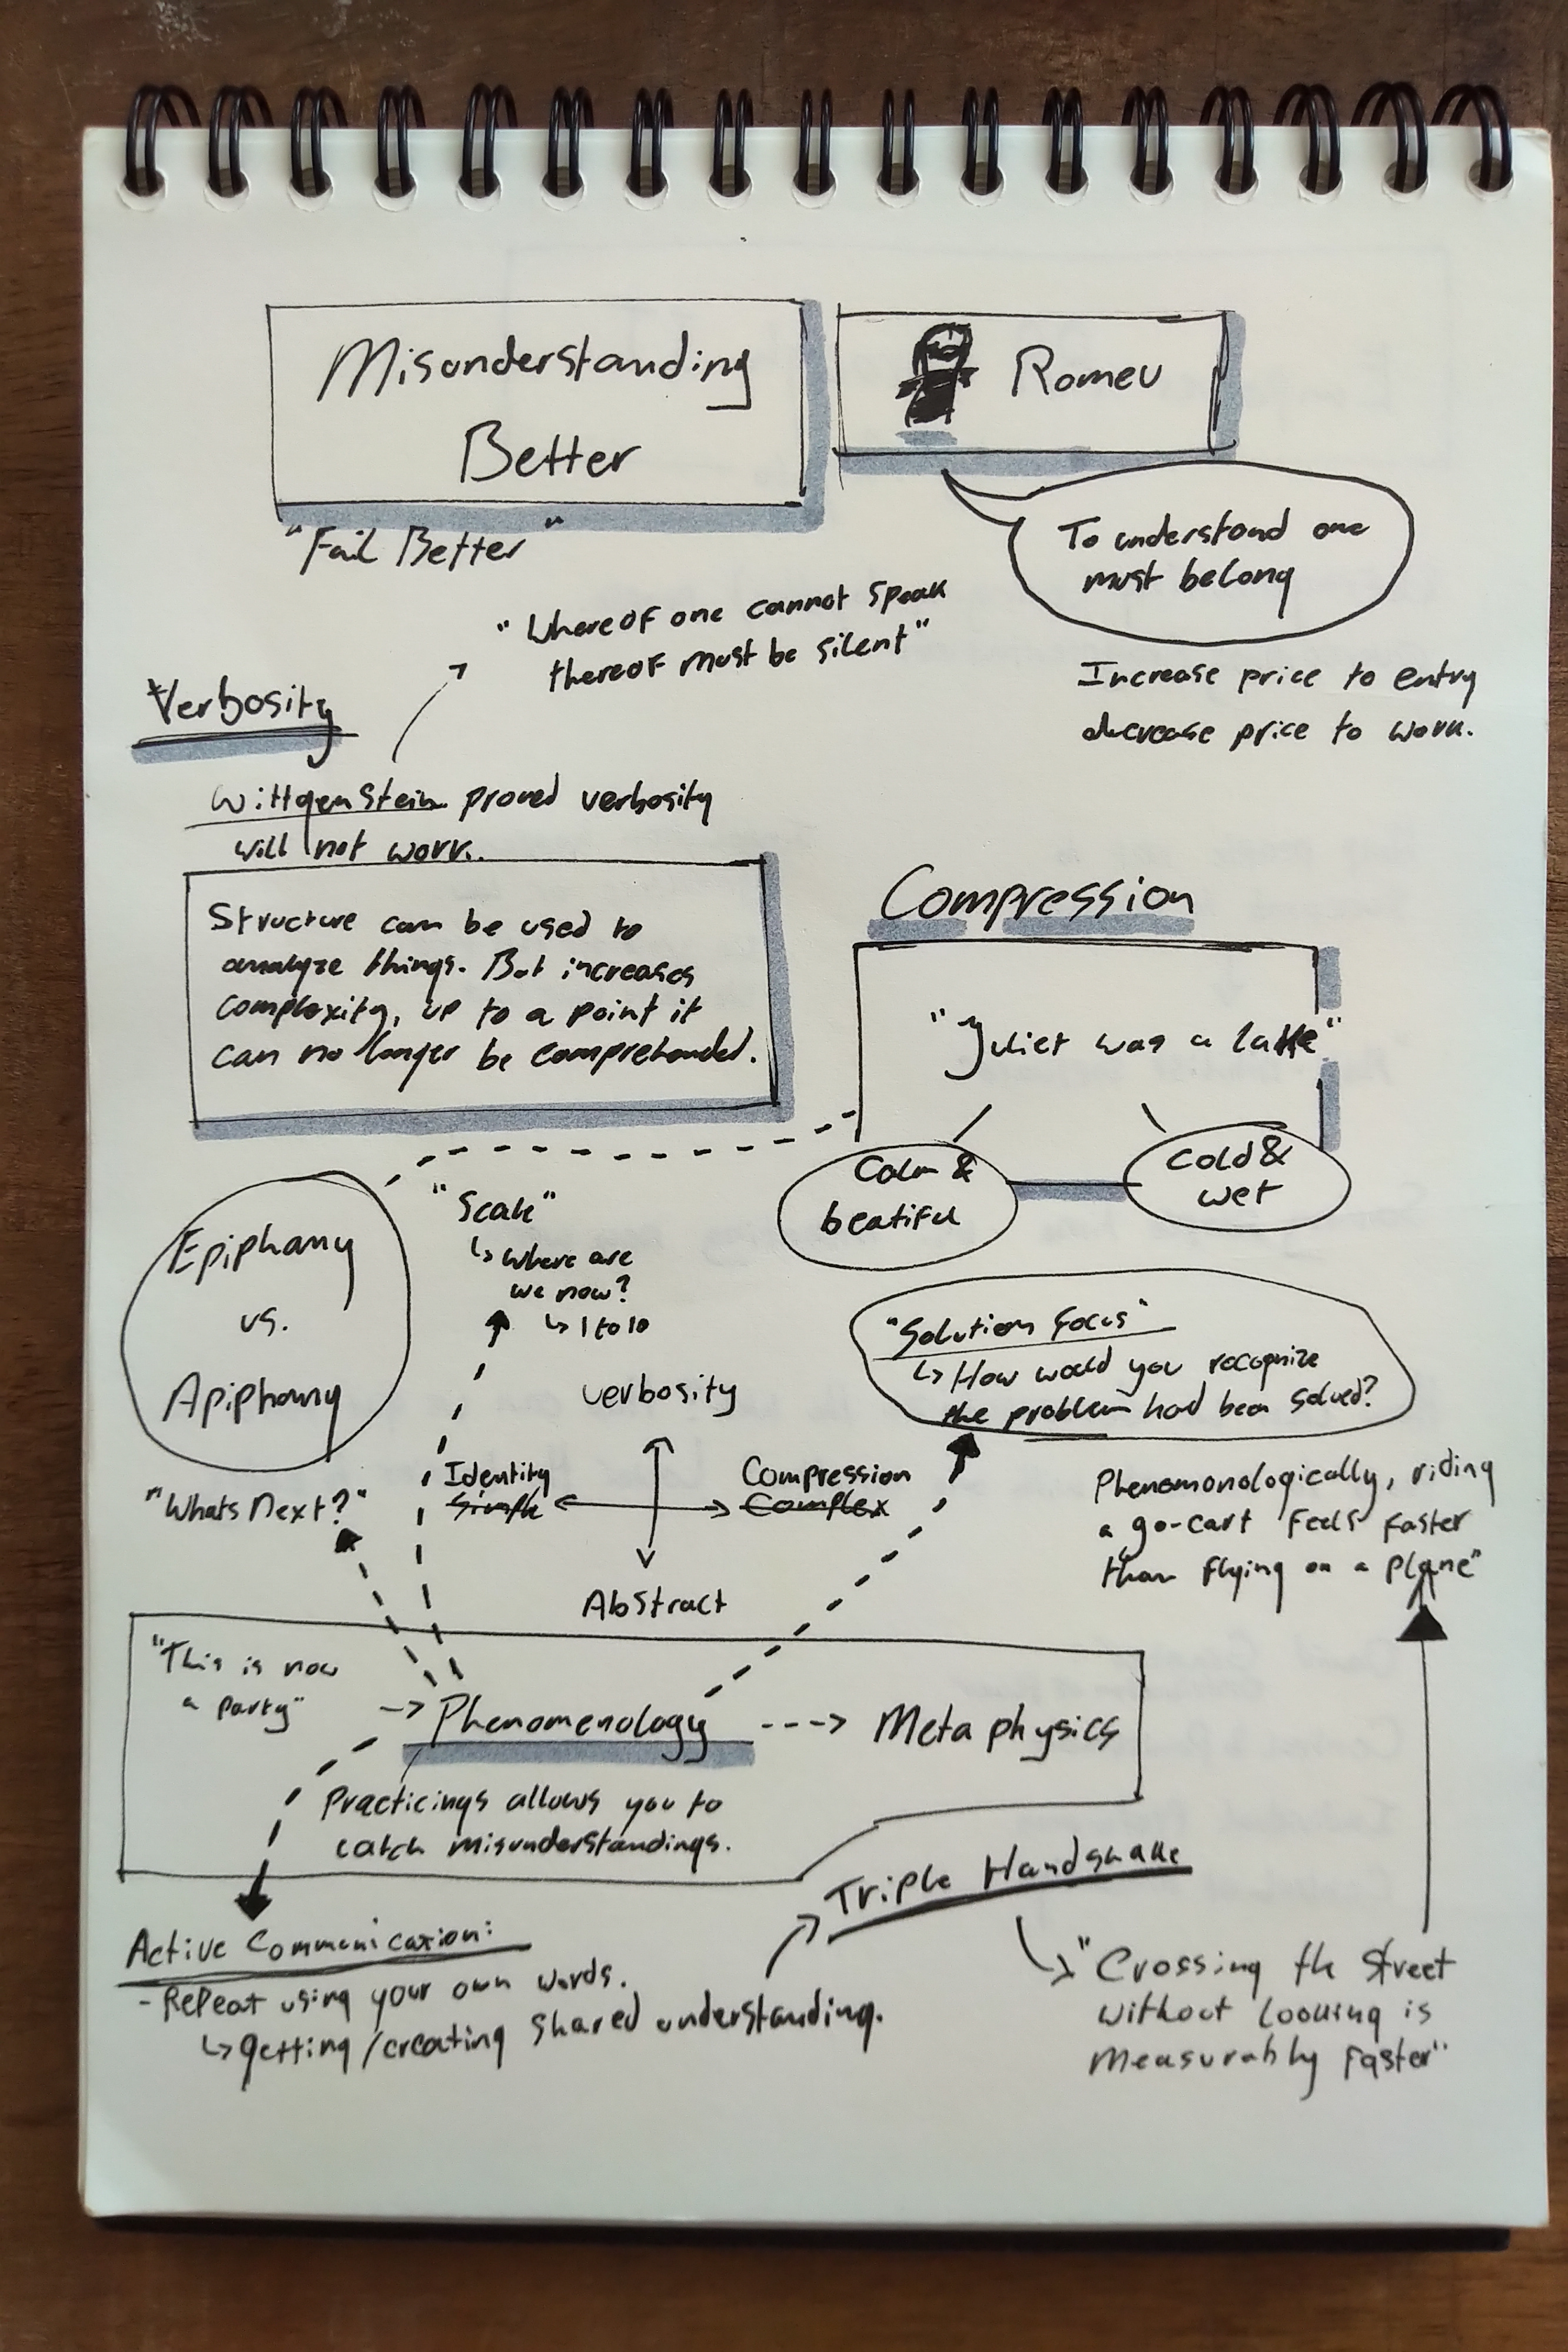 Misunderstanding
Better
Romeu
"Fail Better"
To understand one
must belong
"Whereof one cannot speak
thereof must be silent"
Increase price to entry
decrease price to work.
Verbosity
Wittgenstein proved verbosity
will not work.
Structure can be used to
analyze things. But increases
complexity, up to a point it
can no longer be comprehended.
Compression
"Juliet was a lake"
Calm &
beatiful
Cold &
wet
Epiphany
vs.
Apiphany
"Scale"
↳ Where are
we now?
↳ 1 to 10
"Solution Focus"
↳ How would you recognize
the problem had been solved?
verbosity
Identity
Simple
Compression
Complex
Abstract
"Whats Next?"
Phenomonologically, riding
a go-cart feels faster
than flying on a plane"
"This is now
a party"
Phenomenology
Metaphysics
Practicings allows you to
catch misunderstandings.
Triple Handshake
Active Communication:
- Repeat using your own words.
↳ getting/creating shared understanding.
"Crossing the street
without looking is
measurably faster"